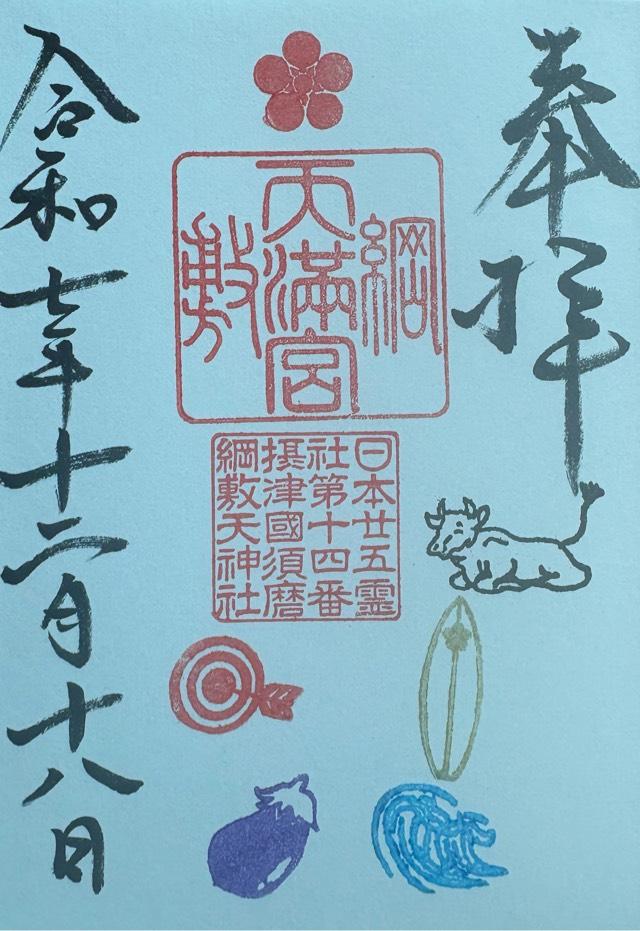 奉拝
綱
天満宮
敷
日本廿五霊
社第十四番
摂津國須磨
綱敷天神社
令和七年十二月十八日